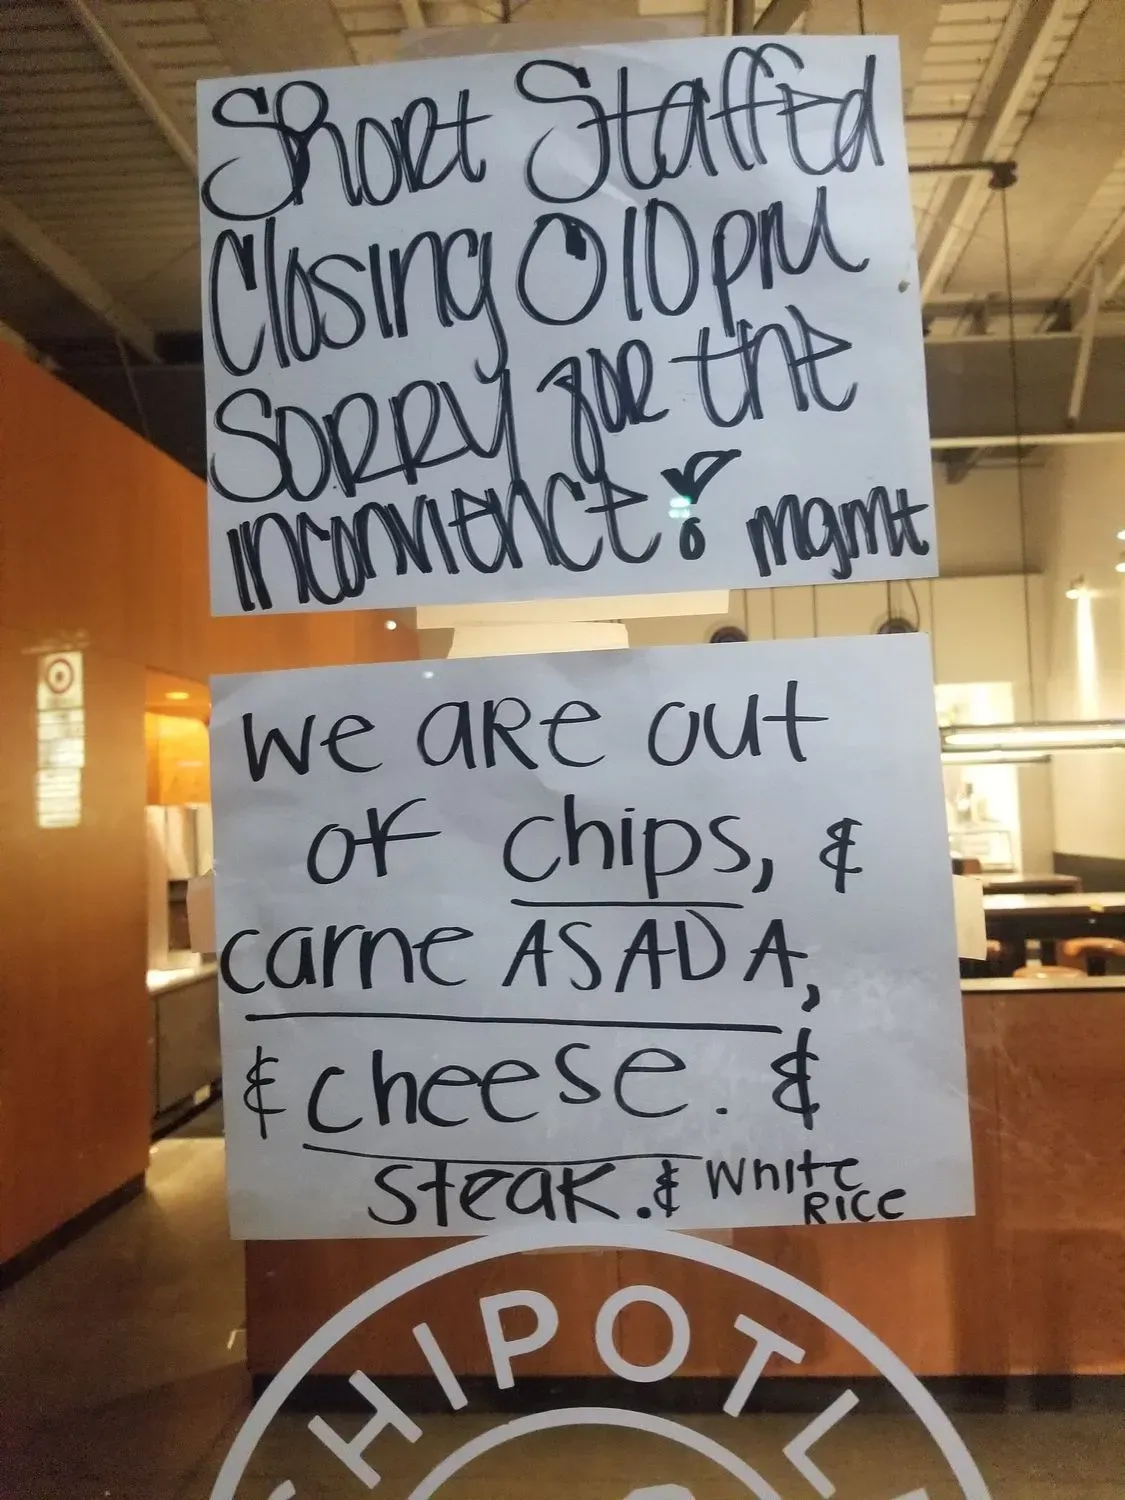 Short Staffed
Closing @ 10pm
Sorry for the
inconvience! mgmt
We are out
of chips, &
carne ASADA,
& cheese. &
steak. & White
Rice
CHIPOTL